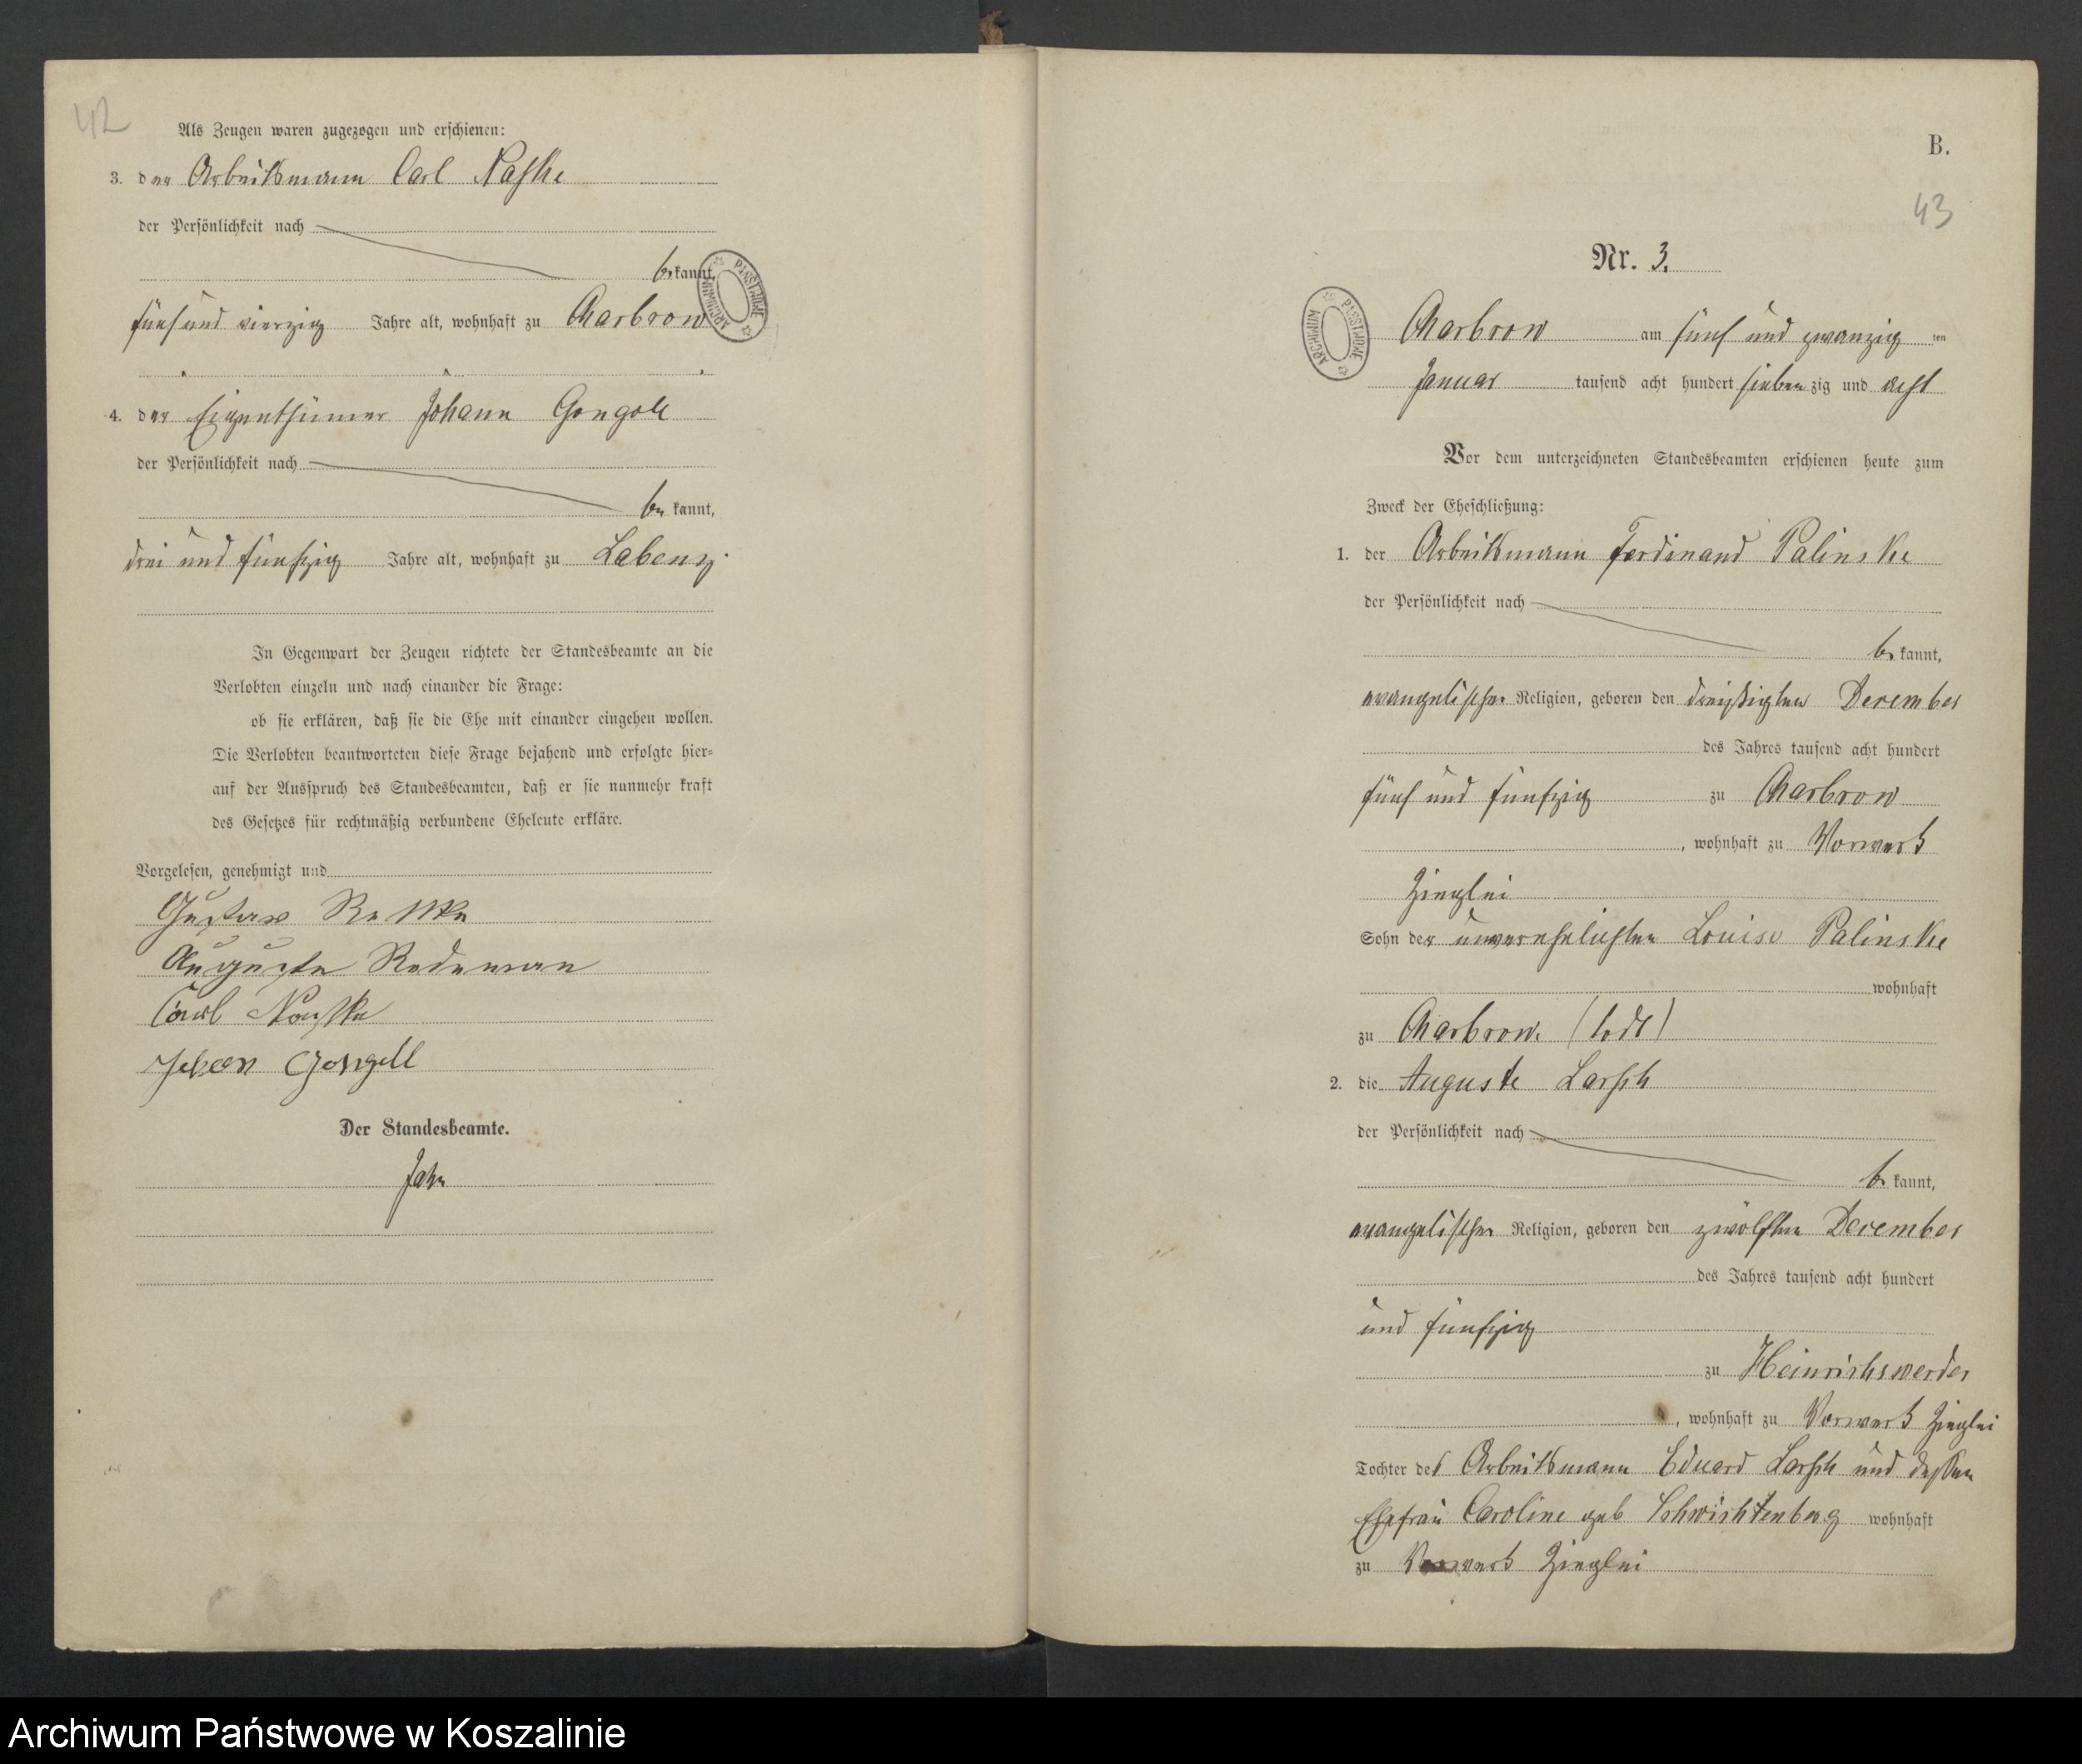 42
Als Zeugen waren zugezogen und erschienen:
3. der Arbeitsmann Carl Naßke
der Persönlichkeit nach
bekannt,
fünf und vierzig Jahre alt, wohnhaft zu Charbrow
4. der Eigenthümer Johann Gongoll
der Persönlichkeit nach
be kannt,
drei und fünfzig Jahre alt, wohnhaft zu Labenz
In Gegenwart der Zeugen richtete der Standesbeamte an die
Verlobten einzeln und nach einander die Frage:
ob sie erklären, daß sie die Ehe mit einander eingehen wollen.
Die Verlobten beantworteten diese Frage bejahend und erfolgte hier-
auf der Ausspruch des Standesbeamten, daß er sie nunmehr kraft
des Gesetzes für rechtmäßig verbundene Eheleute erkläre.
Vorgelesen, genehmigt und
Gustav
Auguste
Carl Naßke
Johan Gongoll
Der Standesbeamte.
B.
43
Nr. 3.
ARCHIWUM PAŃSTWOWE
Charbrow am fünf und zwanzig ten
Januar tausend acht hundert sieben zig und acht
Vor dem unterzeichneten Standesbeamten erschienen heute zum
Zweck der Eheschließung:
1. der Arbeitsmann Ferdinand Palinske
der Persönlichkeit nach
be kannt,
evangelischer Religion, geboren den dreißigsten December
des Jahres tausend acht hundert
fünf und fünfzig zu Charbrow
, wohnhaft zu Vorwerk
Ziegelei
Sohn der unverehelichten Louise Palinske
wohnhaft
zu Charbrow. (todt)
2. die Auguste Larsch
der Persönlichkeit nach
be kannt,
evangelischer Religion, geboren den zwölften December
des Jahres tausend acht hundert
und fünfzig
zu Heinrichswerder
, wohnhaft zu Vorwerk Ziegelei
Tochter des Arbeitsmann Eduard Larsch und dessen
Ehefrau Caroline geb Schwichtenberg wohnhaft
zu Vorwerk Ziegelei
Archiwum Państwowe w Koszalinie